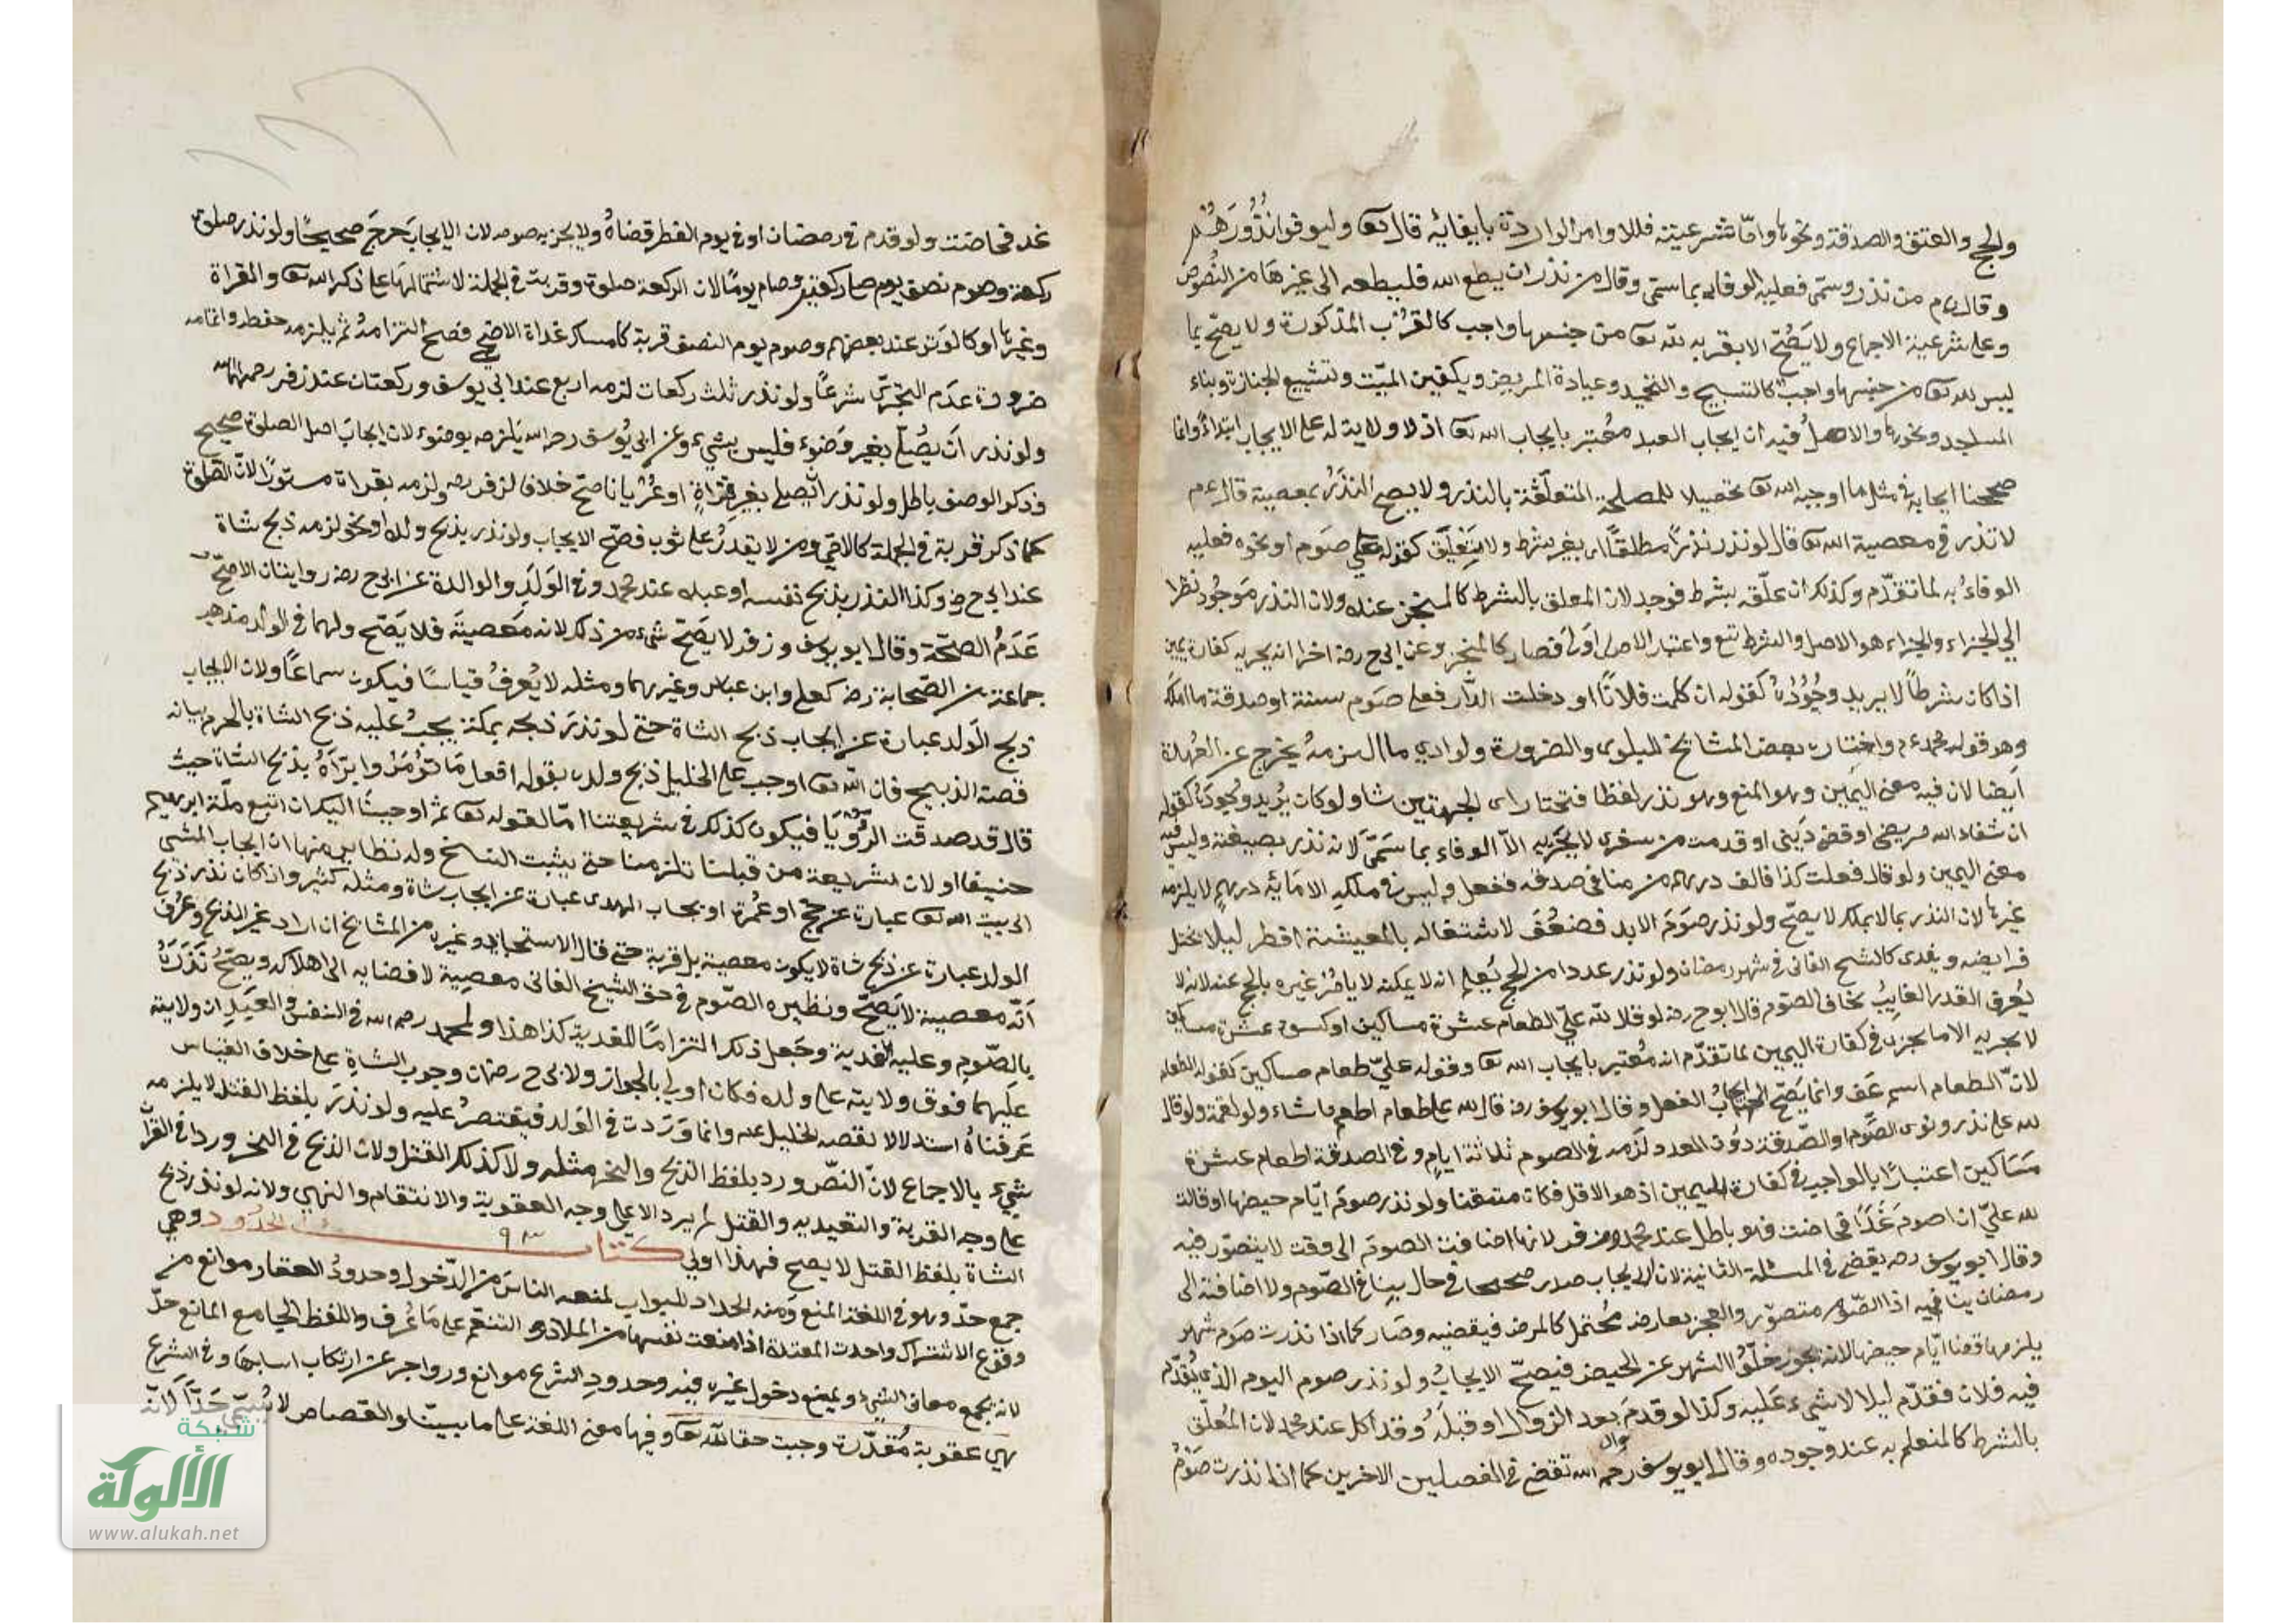 والحج والعتق والصدقة ونحوها وامّا شرعيته فللاوامر الواردة بايفائه قال تعا وليوفوا نُذُورَهُم
وقال عم من نذر وسمّى فعليه الوفاء بما سمّى وقال من نذر ان يطع الله فليطعه الى غيرها من النُصُوص
وعلى شرعية الاجماع ولا يَصُحّ الا بقربه لله تعا من جنسها واجب كالقُرَب المذكورة ولا يصحّ بما
ليس لله تعا من جنسها واجب كالتسبيح والتحميد وعيادة المريض وتكفين الميّت وتشييع الجنازة وبناء
المساجد ونحوها والاصلُ فيه ان ايجاب العبد مُعْتبر بايجاب الله تعا اذ لا ولاية له على الايجاب ابتداءً وانما
صححنا ايجابه في مثل ما اوجبه الله تعا تحصيلا للمصلحة المتعلّقة بالنذر ولا يصح النذرُ بمعصية قال عم
لا نذر في معصية الله تعا قال لو نذر نذرًا مطلقًا اى بغير شرط ولا تعليق كقوله علي صَوم او نحوه فعليه
الوفاءُ به لما تقدّم وكذلك ان علّقه بشرط فوجد لان المعلق بالشرط كالمنجز عنده ولان النذر مَوجُود نظرا
الي الجزاء والجزاء هو الاصل والشرط تبع واعتبار الاصل اَولى فصار كالمنجز وعن ابي ح رضه اخرا انه يجزيه كفارة يمين
اذا كان شرطاً لا يريد وجُوُدُهُ كقوله ان كلمت فلانًا او دخلت الدَّار فعلى صَوم سنة او صدقة ما املكه
وهو قوله محمد رحم واختاره بعض المشايخ للبلوى والضرورة ولو ادي ما التزمهُ يخرج عن العُهدة
اَيضا لان فيه معنى اليَمين وهو المنع وهو نذر لفظا فتختار اى الجهتين شا ولو كان يُريد وُجُودَهُ كقوله
ان شفاء الله مريضي او قضى دَيني او قدمت من سفرى لا يجزيه الاّ الوفاء بما سَمّى لانه نذر بصيغته وليس فيه
معنى اليمين ولو قال فعلت كذا فالف درهم من مالى صدقه ففعل وليس في ملكه الا مَائه درهم لا يلزمه
غيرها لان النذر بما لا يملك لا يصحّ ولو نذر صَوَم الابد فضعُفَ لاشتغاله بالمعيشة افطر ليلا يختل
فرايضه ويفدى كالشيخ الفانى في شهر رمضان ولو نذر عددا من الحج يُعلم انه لا يمكنه لا يامرُ غيره بالحج عنه لانه لا
يُعرف القدر الفايتُ بخاف الصّوم قال ابو ح رضه لو قال لله عليّ اطعام عشرة مساكين او كسوة عشرة مساكين
لا يجزيه الا ما يجزى في كفارة اليمين لما تقدّم انه مُعتبر بايجاب الله تعا وقوله عليّ طعام مساكين كقوله اطعام
لانّ الطعام اسم عَين وانما يَصّح ايجابُ الفعل وقال ابو يوسف رضه قال لله علي طعام اطعم ما شاء ولو لقمة ولو قال
لله على نذر ونوى الصَّوم او الصّدقة دوُن العدد لزَمه في الصوم ثلاثة ايام وفي الصدقة اطعام عشرة
مَسَاكين اعتبارًا بالواجب في كفارة اليمين اذ هو الاقل فكان متيقنا ولو نذرت صوم ايّام حيضها او قالت
لله عليّ ان اصوم غَدًا فحاضت فهو باطل عند محمد وزفر لانها اضافت الصوم الى وقت لا يتصوّر فيه
وقال ابو يوسف رحه يقضى في المسئلة الثانية لان الايجاب صدر صحيحا في حال لا ينافى الصّوم ولا اضافته الى
رمضان ينافيه اذ الصّوم متصوّر والعجز بعارض مُحتمل كالمرض فيقضيه وصَار كما اذا نذرت صَوم شهر
يلزمها قضا ايّام حيضها لانه يجوز خلُّو الشهر عن الحيض فيصحّ الايجابُ ولو نذر صوم اليوم الذى يُقدّم
فيه فلان فقدّم ليلا لا شيء عَليه وكذا لو قدمَ بعد الزوال او قبلَهُ وقد اكل عند محمد لان المُعلّق
بالشرط كالمتعلم به عند وجوده وقال ابو يوسف رحمه الله تقضى في الفصلين الاخرين كما اذا نذرت صَومُ
غد فحاضت ولو قدم في رمضان او في يوم الفطر قضاهُ ولا يجزيه صومه لان الايجابَ خرجَ صحيحًا ولو نذر صلوة
ركعة وصوم نصف يوم صلى ركعتين وصام يومًا لان الركعة صلوة وقربة في الجملة لاشتمالها على ذكر الله تعا والقراة
وغيرها او كالوتر عند بعضهم وصوم يوم النصف قربة كامساك غداة الاضحى فصح التزامهُ ثم يلزمه حفظه واتمامه
ضرورة عدم التجزّى شرعًا ولو نذر ثلث ركعات لزمه اربع عند ابي يوسف وركعتان عند زفر رحمهما الله
ولو نذر اَن يُصُلّى بغير وَضوء فليس بشيء وعن ابي يُوسف رحه الله يَلزمه بوضوء لان ايجابَ اصل الصلوة صحيح
وذكر الوصف باطل ولو نذر ان يصلي بغير قرُاةٍ او عُرْيانا صَحّ خلافا لزفر رحه ولزمه بقراة مستورًا لان الصَلوة
كما ذكر قربة في الجملة كالامّي ومن لا يقدرُ على ثوب فصَحّ الايجاب ولو نذر بذبح ولده او نحوه لزمه ذبح شاة
عند ابي ح رض وكذا النذر بذبح نفسه او عبده عند محمد وفي الوَلَدِ والوالدة عن ابي ح رضه روايتان الاصَحّ
عَدَمُ الصحّة وقال ابو يوسف وزفر لا يصَحّ شيء من ذلك لانه مَعصيةَ فلا يَصّح ولهما في الولد مذهب
جماعة من الصّحابة رضه كعلي وابن عباس وغيرهما ومثله لا يُعرفُ قياسًا فيكون سماعًا ولان ايجاب
ذبح الوَلد عبارة عن ايجاب ذبح الشاة حتى لو نذرَ ذبحه بمكة يجبُ عليه ذبح الشاة بالحرم بيانه
قصة الذبيح فان الله تعا اوجب على الخليل ذبح ولده بقوله افعل مَا تؤمَرُ وامرَاهُ بذبح الشاة حيث
قال قد صدقت الرُّؤْيَا فيكون كذلك في شريعتنا امّا لقوله تعا ثم اوحينَا اليك ان اتبع ملّة ابرهيم
حنيفا او لان شريعة من قبلنا تلزمنا حتى يثبت النسخ وله نظاير منها ان ايجاب المشى
الى بيت الله تعا عبارة عن حج او عُمرة او ايجاب الهدى عبارة عن ايجاب شاة ومثله كثير واذا كان نذر ذبح
الولد عبارة عن ذبح شاة لا يكون معصية بل قربة حتى قال الاسبيجابى وغيره من المشايخ ان اراد غير الذبح وعرف
انّه معصية لا يَصَحّ ونظيره الصّوم في حق الشيخ الفانى معصية لافضايه الى اهلاكه ويصحّ نَذَرَهُ
بالصّوم وعليه الفدية وجَعل ذلك التزامًا للفدية كذا هذا ولمحمد رحمه الله في النفس والعبد ان ولايته
علَيهما فوق ولايته على ولده فكان اولي بالجواز ولابي ح رضه ان وجوب الشاةِ على خلاف القياس
عَرفناهُ استدلالا بقصه الخليل عم وانما وَرَدت في الوَلد فيقتصرُ عليه ولو نذرَ بلفظ القتل لا يلزمه
شيء بالاجماع لانّ النصّ ورد بلفظ الذبح والنحر مثله ولا كذلك القتل ولان الذبح في النحر وردا في القرآن
على وجه القربة والتعبد به والقتل لم يرد الا على وجه العقوبة والانتقام والنهي ولانه لو نذر ذبح
الشاة بلفظ القتل لا يصح فهذا اولي كتاب الحُدود وهي
جمع حدّ وهو في اللغة المنع وَمنه الحداد للبواب لمنعه الناسَ من الدّخول وحدودُ العقار موانع من
وقوع الاشتراك واحدت المعتدة اذا منعت نفسها من الملاذ والتنعّم على مَا عُرف واللفظ الجامع المانع حدّ
لانه يجمع معانى الشيء ويمنع دخول غيره فيه وحدودِ الشرع موانع وزواجر عن ارتكاب اسبابها وفي الشرع
هي عقوبة مُقدّرة وجبت حقا لله تعا وفيها معنى اللغة على ما بيـنّا والقصاص لا يُسَمّى حَدّاً لانّه
شبكة
الألوكة
www.alukah.net